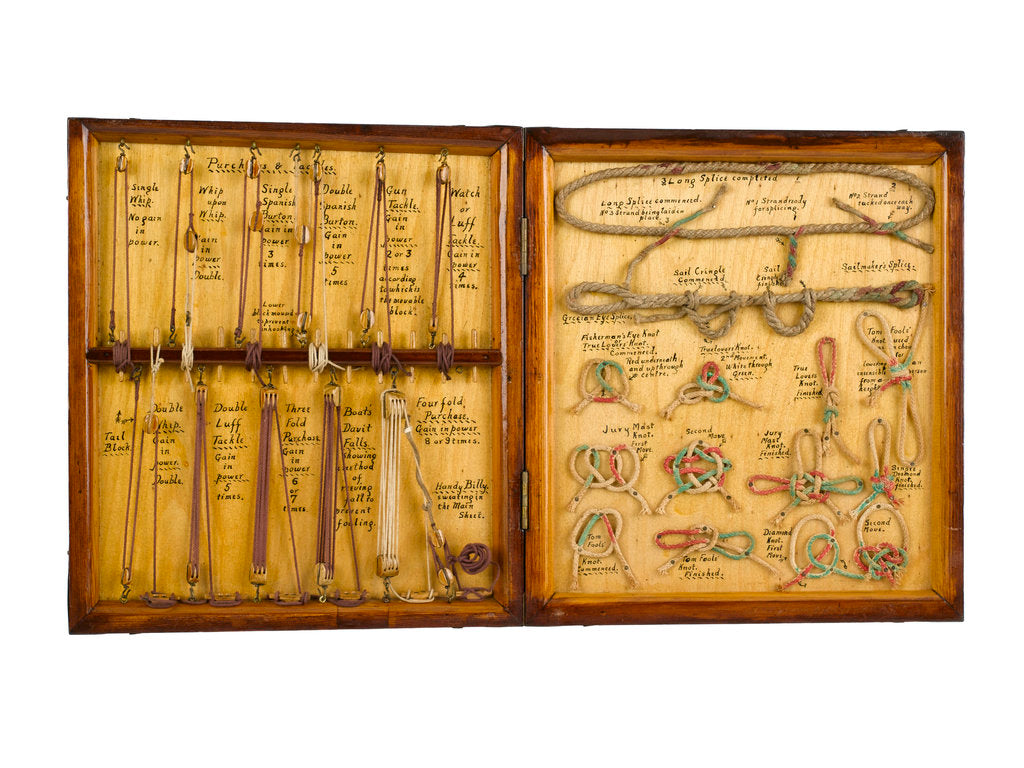 Purchases & Tackles.
Single
Whip.
No gain
in
power.
Whip
upon
Whip.
Gain
in
power
Double.
Single
Spanish
Burton.
Gain in
power
3
times.
Lower
block moused
to prevent
unhooking
Double
Spanish
Burton.
Gain
in
power
5
times
Gun
Tackle.
Gain in
power
2 or 3
times
according
to which is
the movable
block.
Watch
or
Luff
Tackle.
Gain in
power
4
times.
Tail
Block.
Double
Whip.
Gain
in
power
Double.
Double
Luff
Tackle.
Gain
in
power
5
times.
Three
Fold
Purchase
Gain
in
power
6
or
7
times.
Boats
Davit
Falls.
showing
method
of
reeving
fall to
prevent
fouling.
Four fold
Purchase.
Gain in power
8 or 9 times.
Handy Billy.
sweating in
the Main
Sheet.
Long Splice completed
Long Splice commenced.
No 3 Strand being laid in
place. 3
No 1 Strand ready
for splicing.
1
No 2 Strand
tucked once each
way.
Sail Cringle
Commenced.
Sail
Cringle
Sailmaker's Splice.
Grecian Eye Splice.
Fisherman's Eye Knot
True Lovers' Knot.
Commenced.
Red underneath,
and up through
centre.
True lovers Knot.
2nd Movement.
White through
Green.
True
Lovers
Knot.
Finished
Tom Fools'
Knot used
for
lowering
from a
Jury Mast
Knot.
First
Move.
Second
Move
Jury
Mast
Knot.
Finished.
Single
Diamond
Knot
finished.
Tom
Fools'
Knot.
Commenced.
Tom Fools'
Knot.
Finished.
Diamond
Knot.
First
Move.
Second
Move.